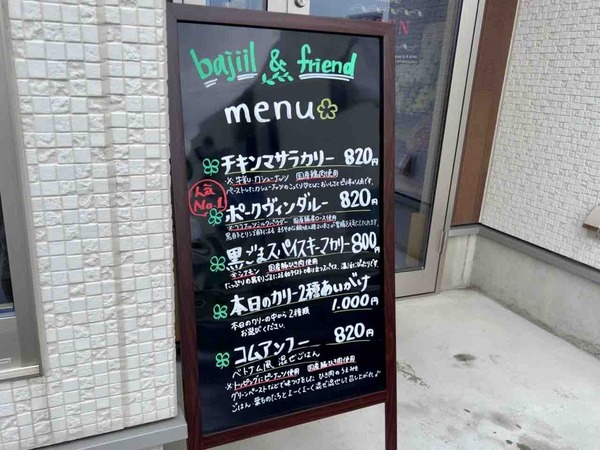 bajiil & friend
menu
チキンマサラカリー 820円
※牛乳・カシューナッツ 国産鶏肉使用
人気No.1
ポークヴィンダルー 820円
※ココナッツミルクパウダー 国産豚肩ロース使用
黒ごまスパイスキーマカリー 800円
※シナモン 国産豚ひき肉使用
本日のカリー2種あいがけ
1,000円
本日のカリーの中から2種類
お選びください。
コムアンフー 820円
ベトナム風 混ぜごはん
※トッピングにピーナッツ使用 国産豚ひき肉使用